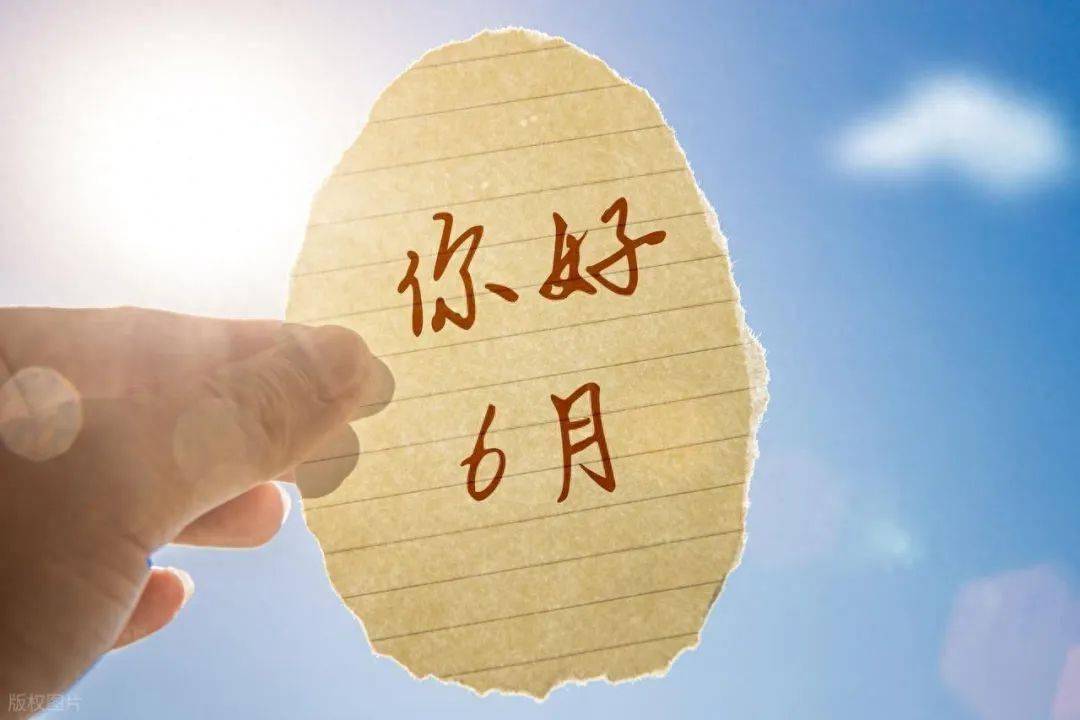 你好
6月
版权图片